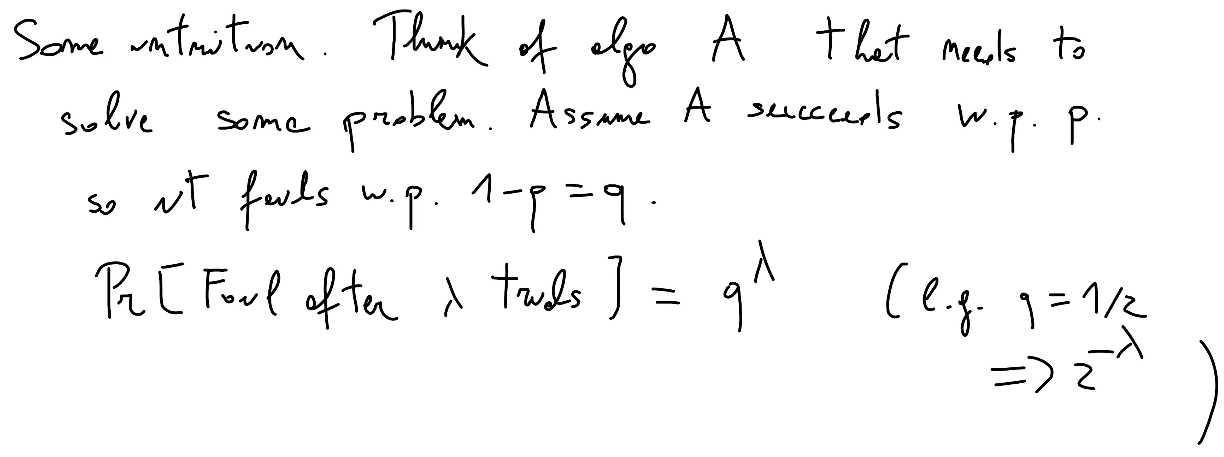 Some intuition. Think of algo A that needs to
solve some problem. Assume A succeeds w.p. p.
so it fails w.p. 1-p = q.
Pr[Fail after λ trials] = q^λ (e.g. q = 1/2
=> 2^-λ)